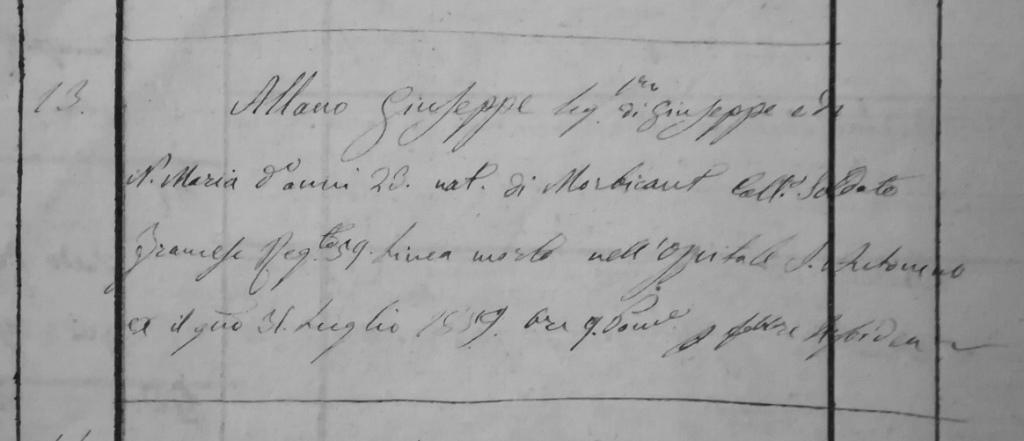 13. Allano Giuseppe leg.mo di Giuseppe e di
N. Maria d'anni 23. nat. di Morbicant Catt.o Soldato
Francese Reg.to 59. Linea morto nell'Ospitale S. Antonino
il gno 31. Luglio 1859. ore 9. Pome p febbre